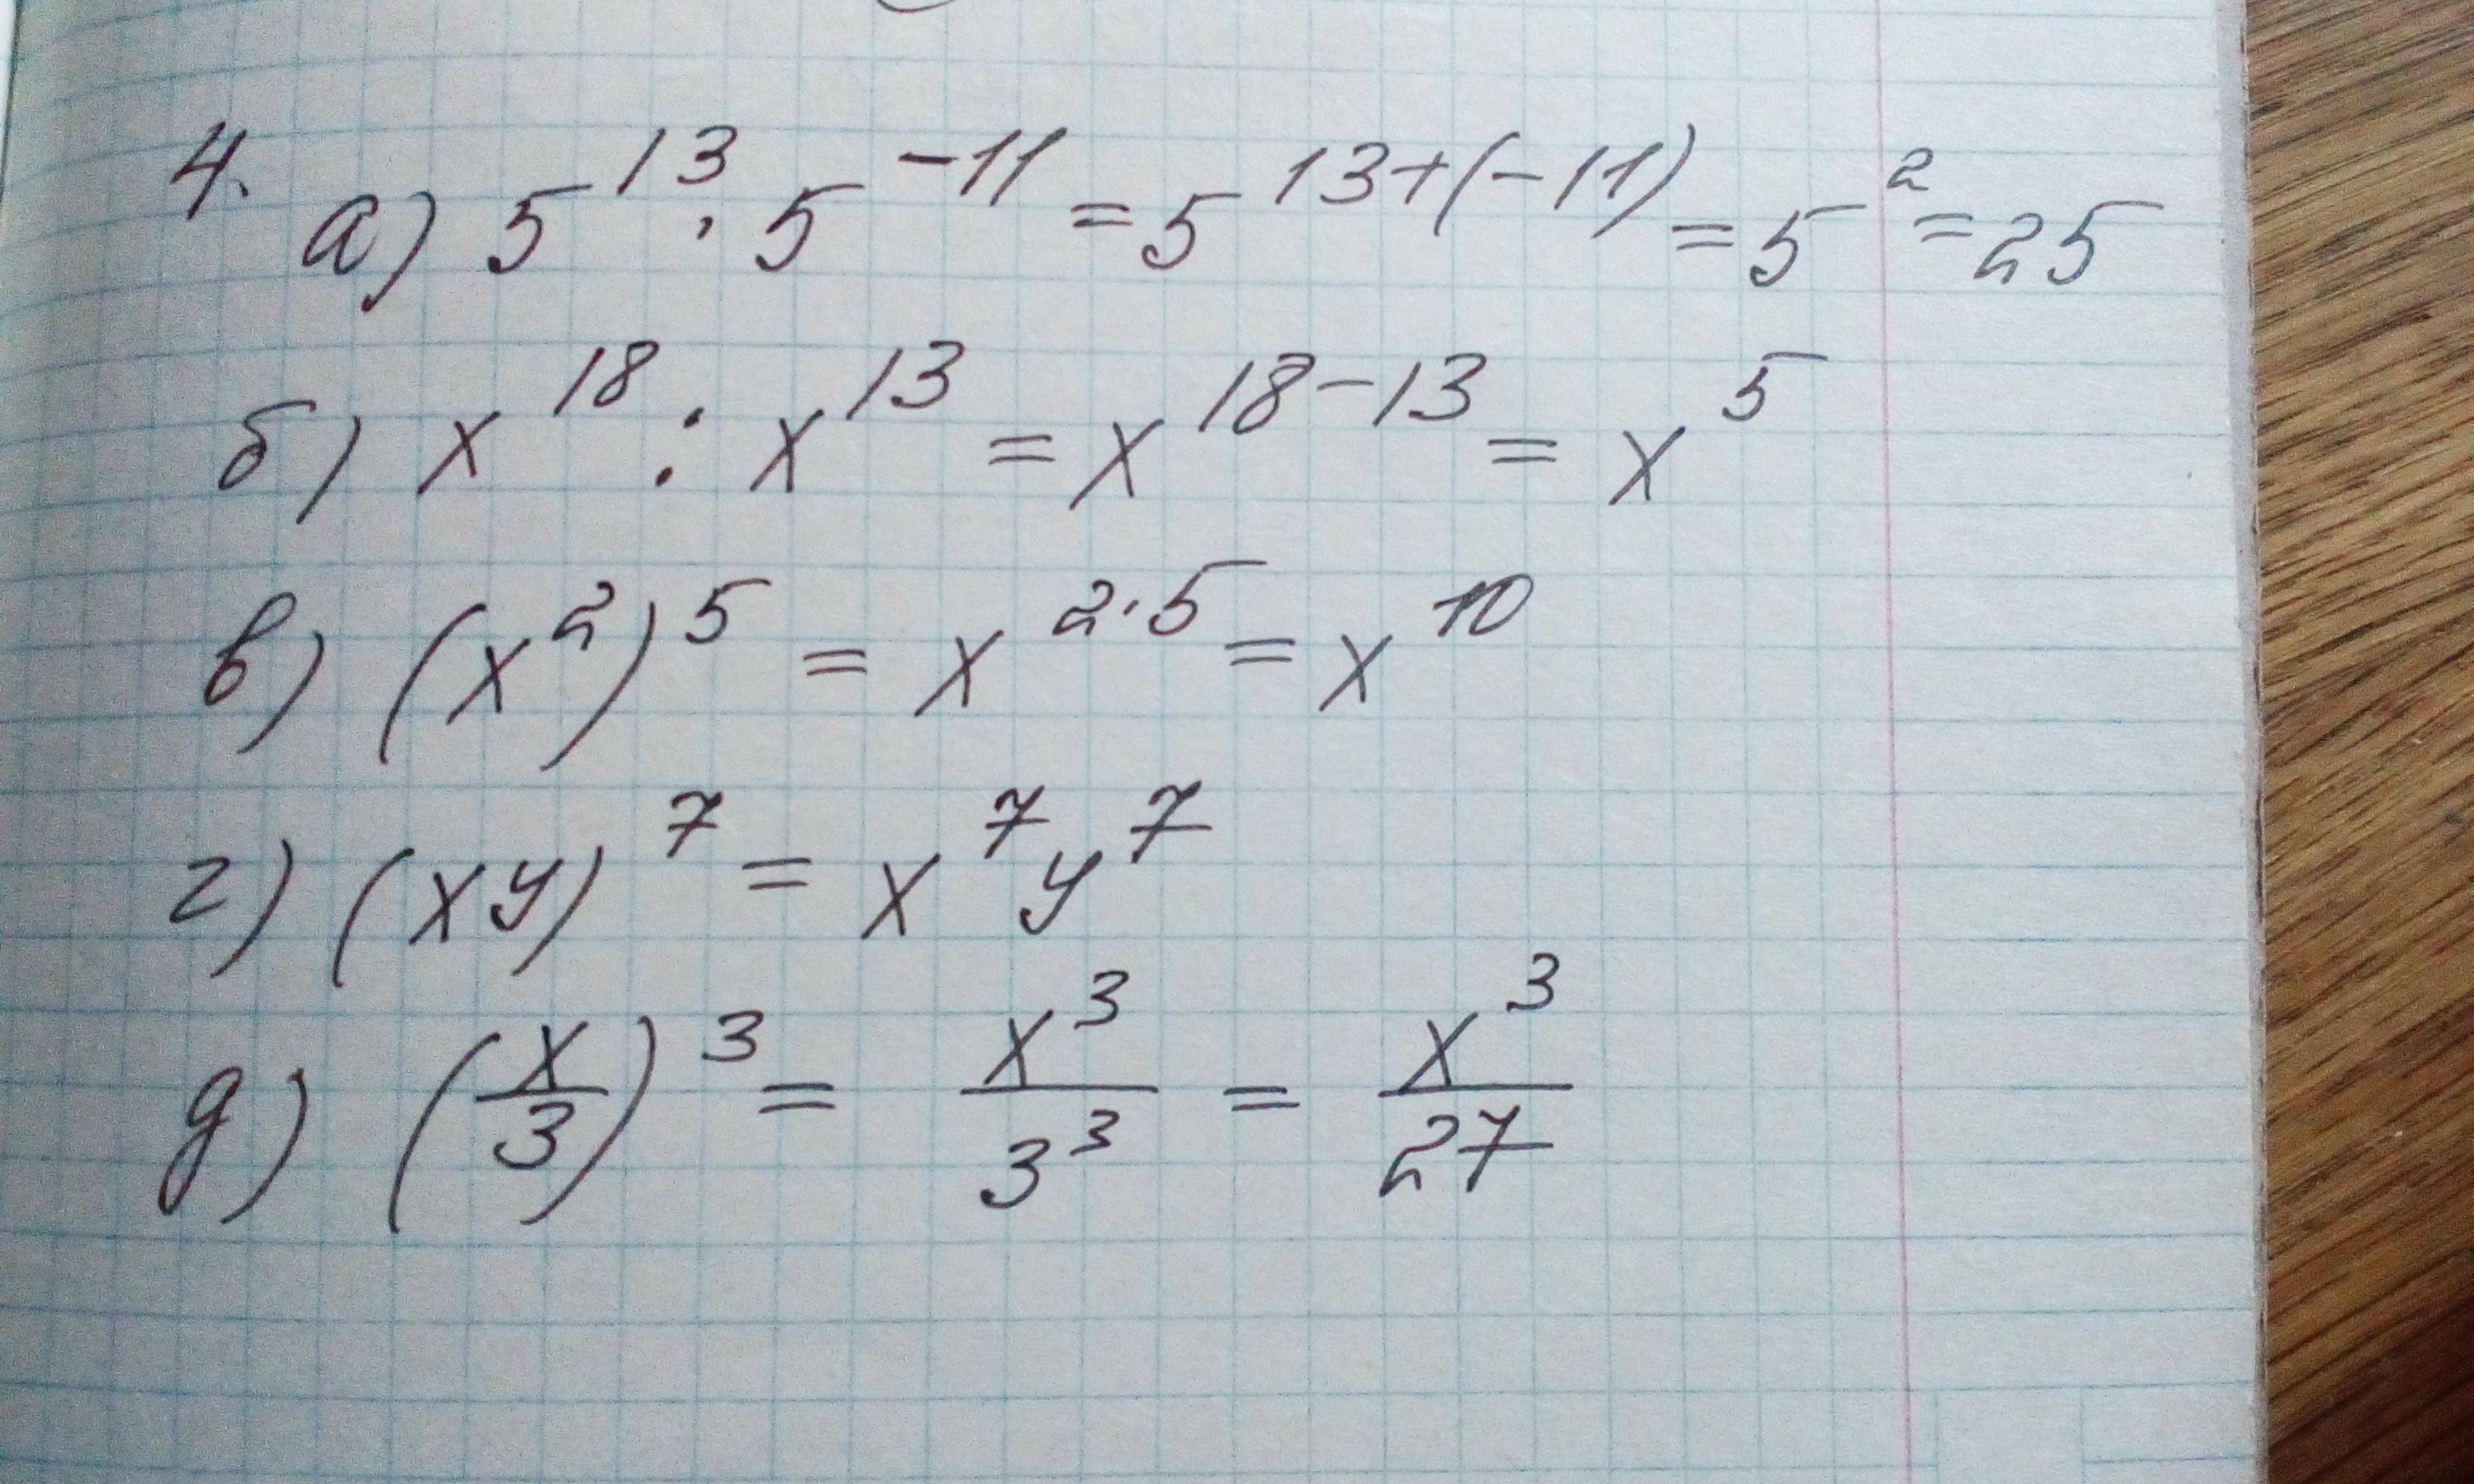 4. а) 5¹³ · 5⁻¹¹ = 5¹³⁺⁽⁻¹¹⁾ = 5² = 25
б) x¹⁸ : x¹³ = x¹⁸⁻¹³ = x⁵
в) (x²)⁵ = x²˙⁵ = x¹⁰
г) (xy)⁷ = x⁷y⁷
д) (x/3)³ = x³/3³ = x³/27